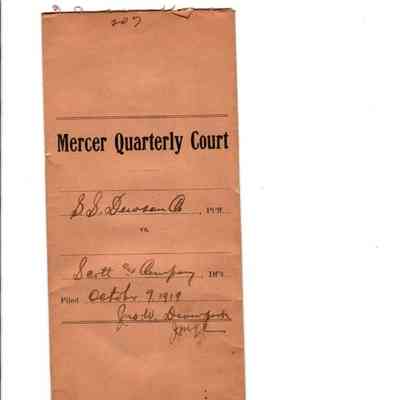 207
Mercer Quarterly Court
S. S. Dawson Co, Pl'ff.
vs.
Scott & Company, Df't.
Filed October 9, 1919
Jno. W. Davenport